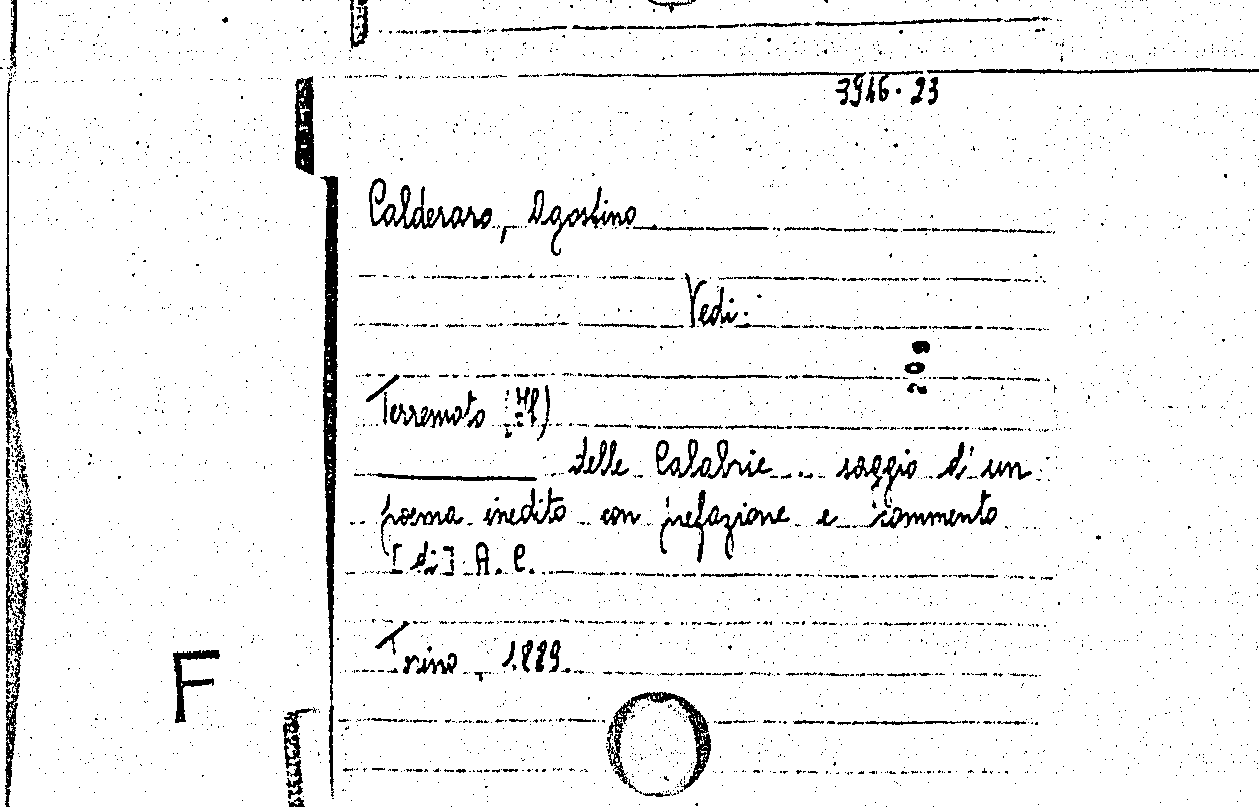 3946.23
Calderaro, Agostino
Vedi:
209
Terremoto (Il)
delle Calabrie .. saggio d'un
poema inedito con prefazione e commento
[di] A. C.
Torino, 1889.
F